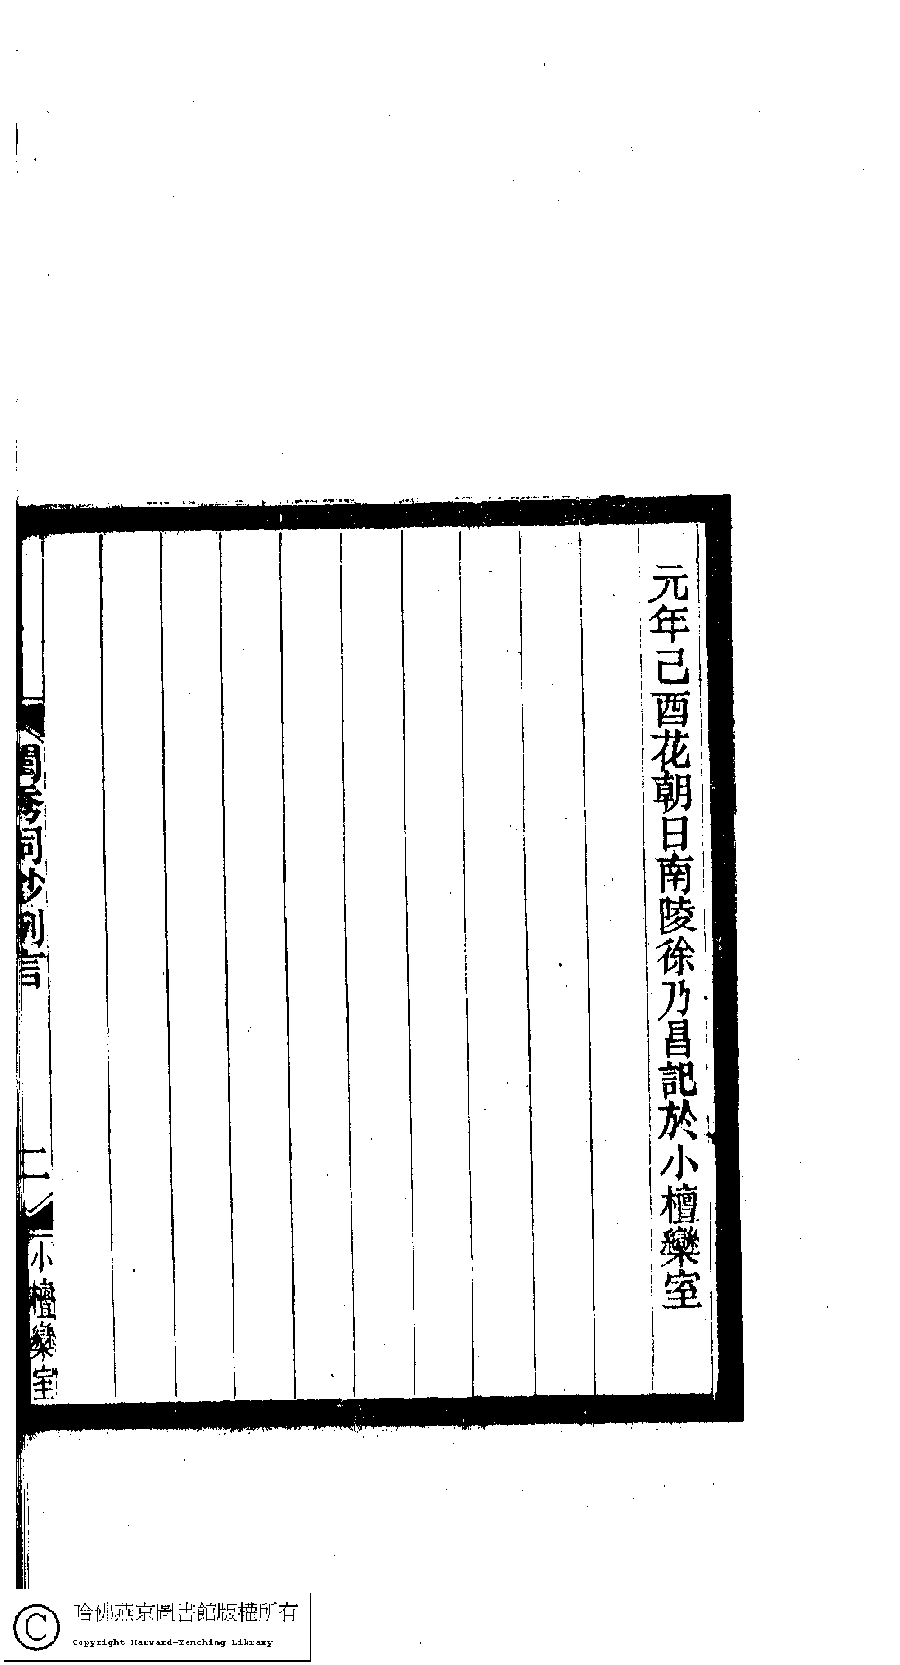 元年己酉花朝日南陵徐乃昌記於小檀欒室
閨秀詞鈔例言
二
小檀欒室
哈佛燕京圖書館版權所有
Copyright Harvard-Yenching Library